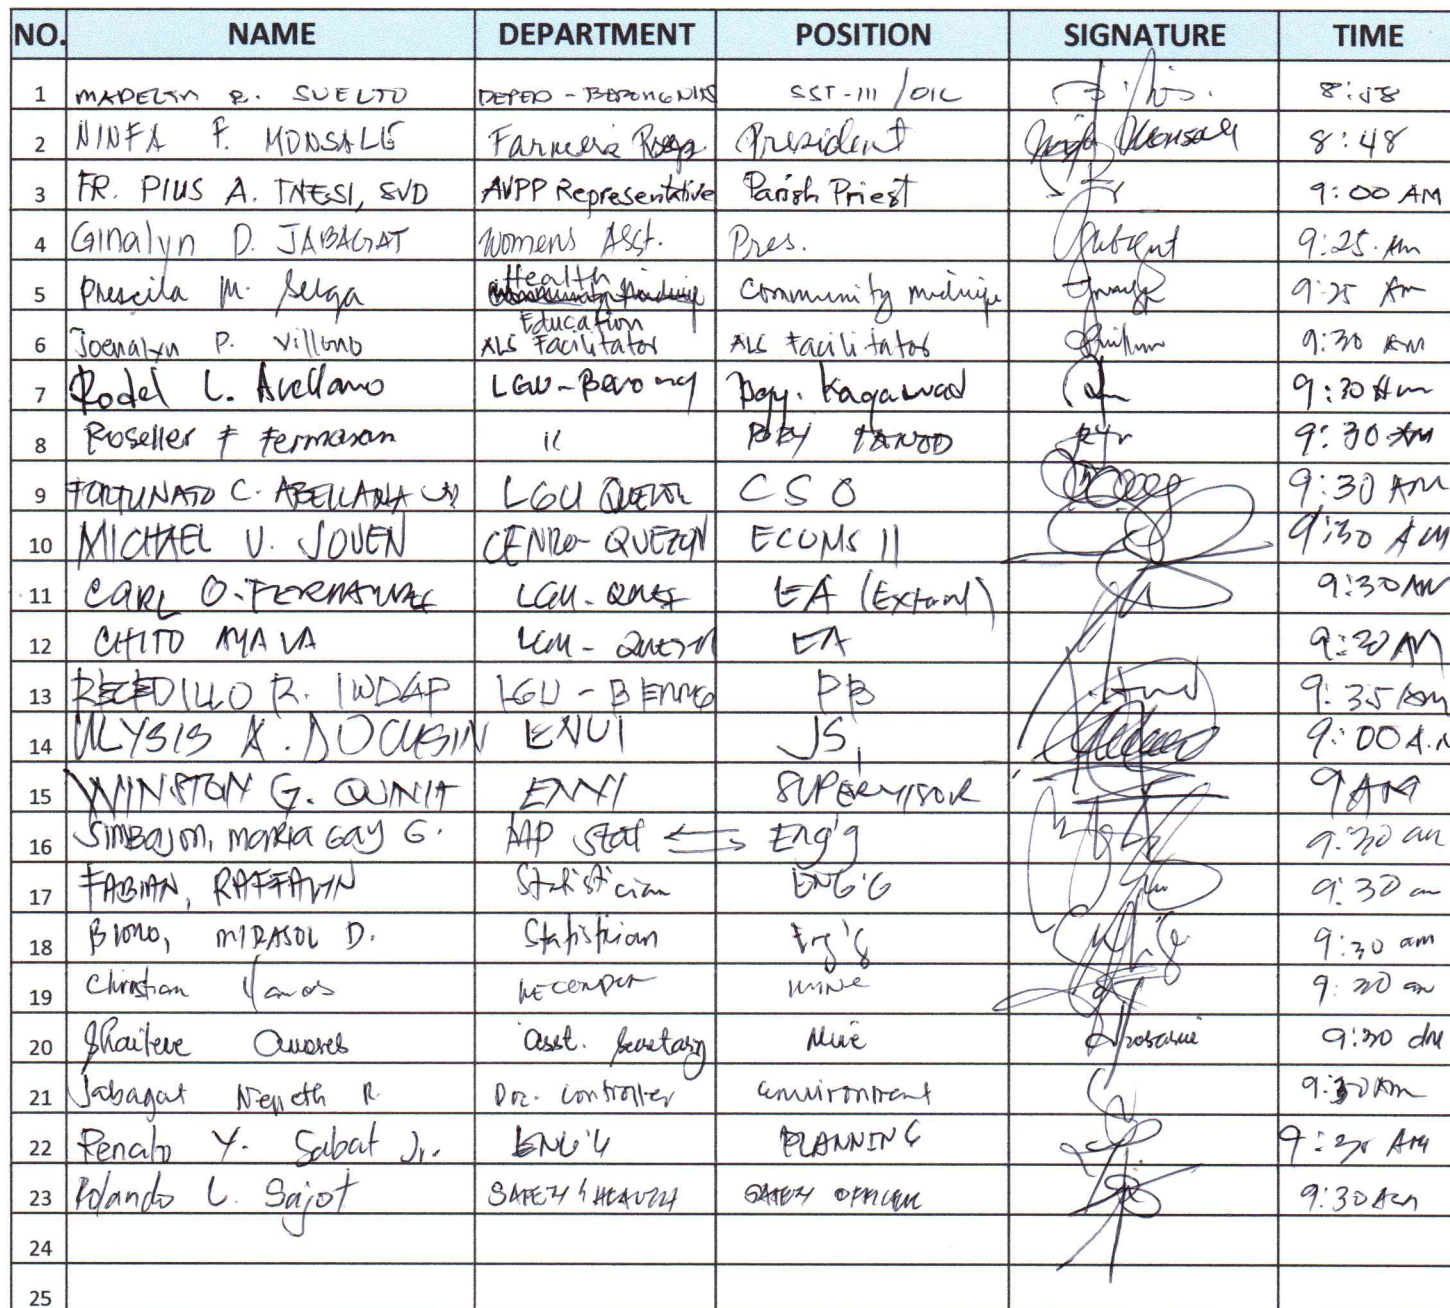 NO. NAME DEPARTMENT POSITION SIGNATURE TIME
1 B. SUELTO DEPED - SST-III /OIC
2 NINFA F. MONSALE Farmers President 8:48
3 FR. PIUS A. TNESI, SVD AVPP Representative Parish Priest 9:00 AM
4 Ginalyn D. JABAGAT Womens Asst. Pres. 9:25 Am
Health
5 Prescila M. Selga Community midwife 9:25 Am
Education
6 Joenalyn P. Villono ALS Facilitator ALS Facilitator 9:30 Am
7 Rodel L. Avellano LGU-Berong Bgy. Kagawad 9:30 Am
8 Roseller F 11 BGY TANOD 9:30 AM
9 FORTUNATO C. ABELLANA JR LGU QUEZON CSO 9:30 AM
10 MICHAEL V. JOVEN CENRO-QUEZON ECOMS II 9:30 AM
11 CARL O. FERNANDEZ LGU- EA 9:30AM
12 CHITO AYALA LGU- QUEZON EA 9:30 AM
13 R. INDAP LGU - BERONG PB 9:35 AM
14 ULYSIS A. DOCUSIN ENVI JS 9:00 A.M
15 WINSTON G. QUNIT ENVI SUPERVISOR 9 AM
16 Simbajon, maria Gay G. stat Eng'g 9:30 am
17 FABIAN, Statistician ENG'G 9:30 am
18 MIRASOL D. Statistician Eng'g 9:30 am
19 Christian mine 9:30 am
20 asst. Secretary Mine 9:30 am
21 Jabagat R. Doc. Controller environment 9:30 Am
22 Renato Y. Sabat Jr. ENG'G PLANNING 9:30 AM
23 Rolando L. Sajot SAFETY & HEALTH SAFETY OFFICER 9:30 Am
24
25